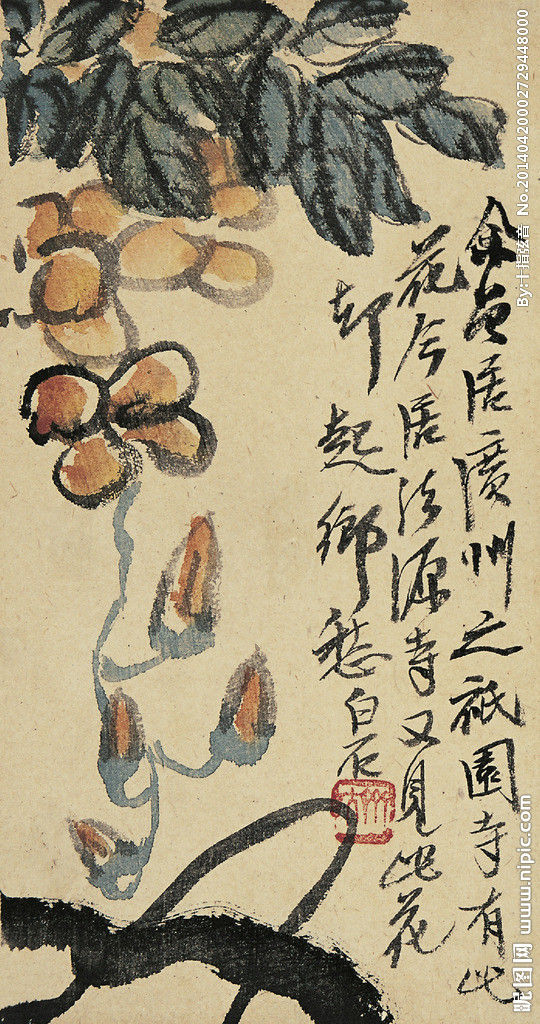 余曾居廣州之祇園寺有此
花今居法源寺又見此花
却起鄉愁白石
By:十指弦音 No.20140420002729448000
昵图网 www.nipic.com